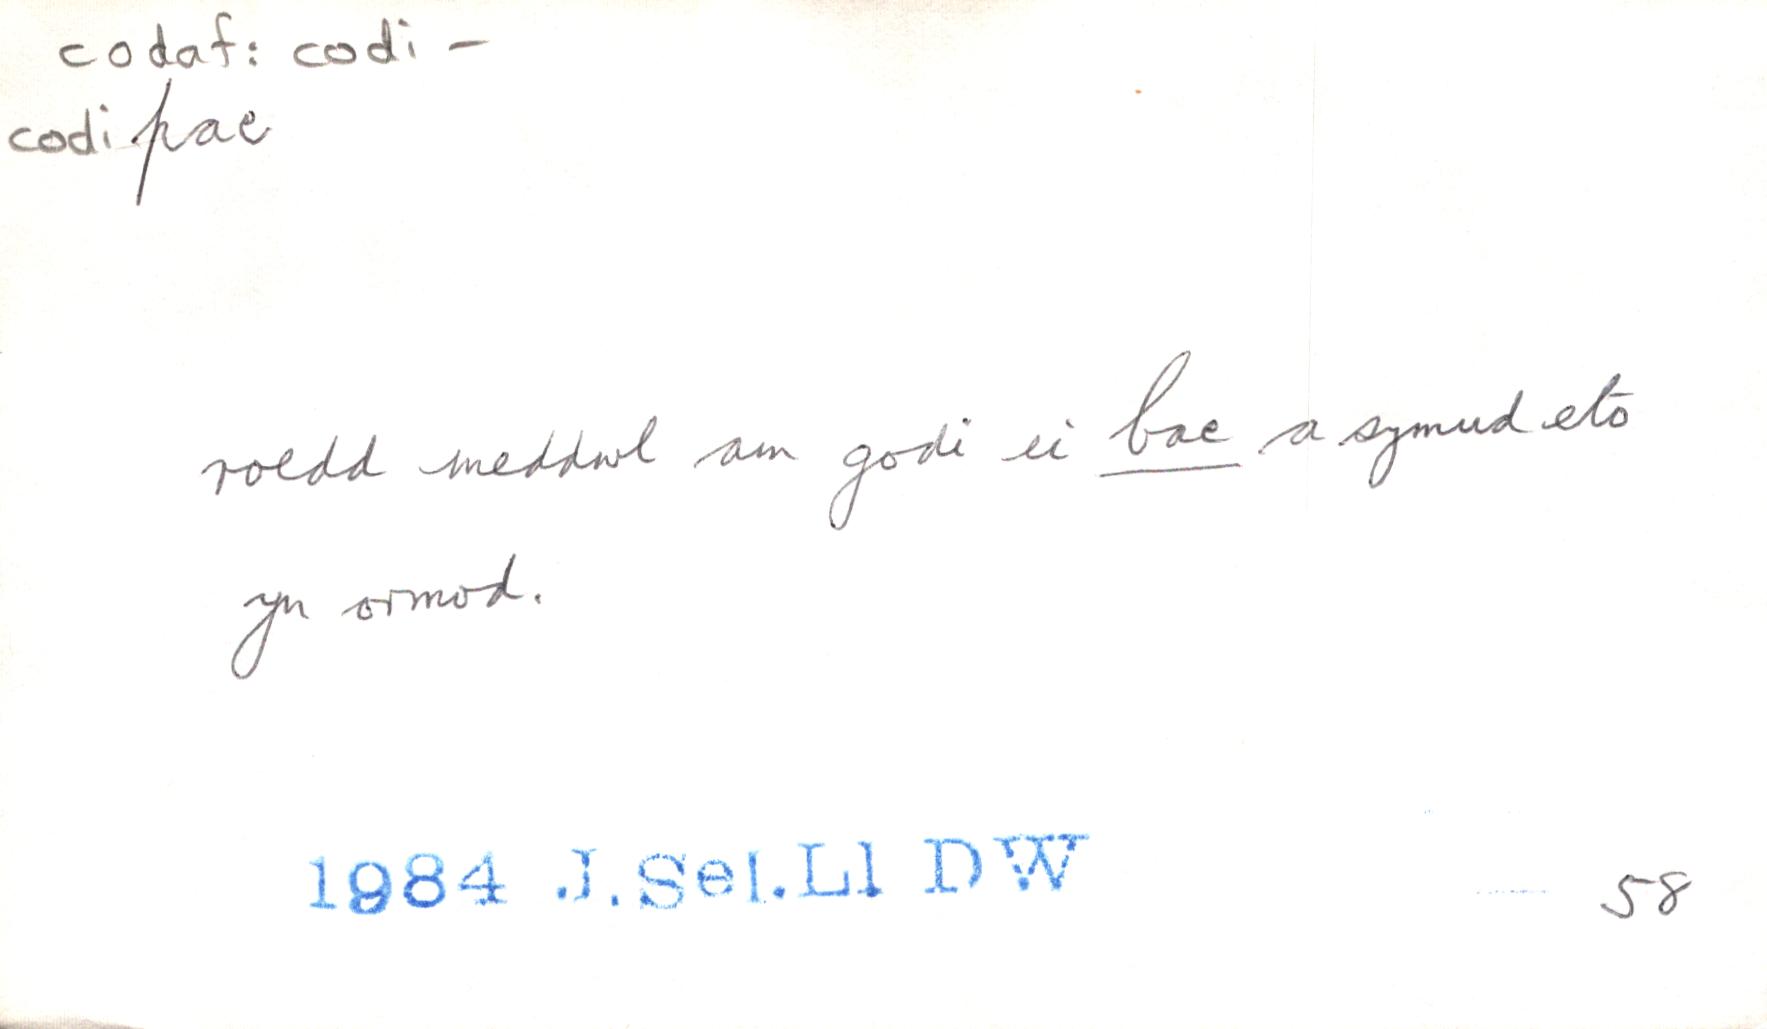 codaf: codi –
codi pac
roedd meddwl am godi ei bac a symud eto
yn ormod.
1984 J.Sel.Ll DW 58